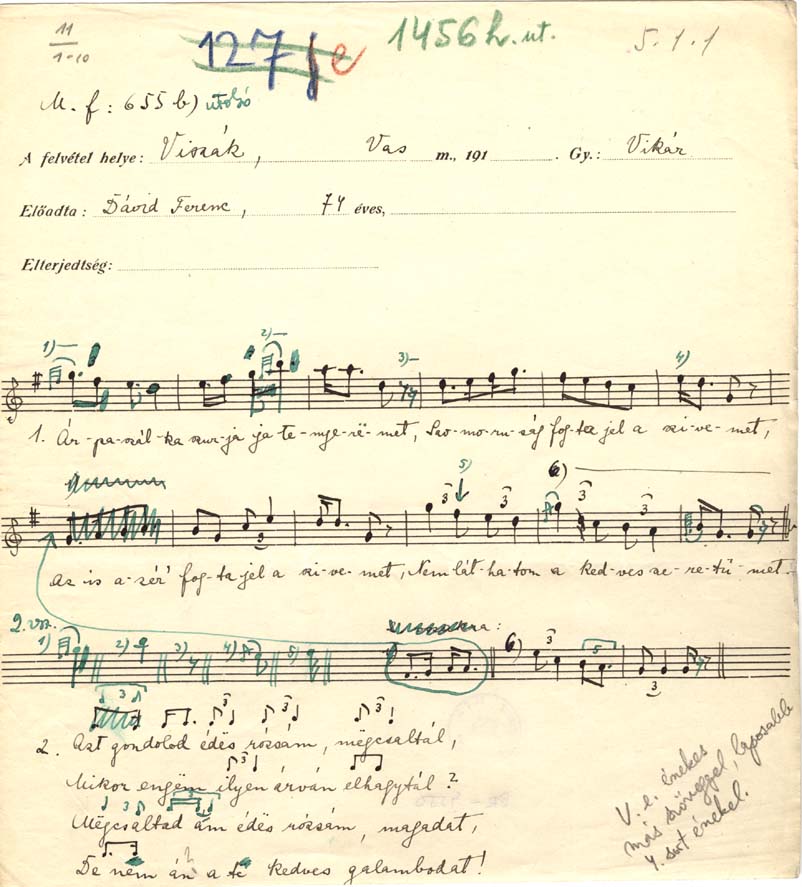 11
1-10
127/e
1456 h. ut.
5.1.1
M. f: 655 b) utolsó
A felvétel helye: Viszák, Vas m., 191 . Gy.: Vikár
Előadta: Dávid Ferenc, 74 éves,
Elterjedtség:
1)— 2)— 3)— 4)
1. Ár-pa-szál-ka szur-ja ja te-nye-rë-met, Szo-mo-ru-ság fog-ta jel a szi-ve-met,
3 3 5) 3 6) 3
Az is a-zér' fog-ta jel a szi-ve-met, Nem lát-ha-tom a ked-ves sze-re-tü-met.
2. vsz.
1) 2) 3) 4) 5) 6) 3 5 3
3 3 3 3
2. Azt gondolod édës rózsám, mëgcsaltál,
3
Mikor engëm ilyen árván elhagytál?
3
Mëgcsaltad ám édës rózsám, magadat,
De nem án a të kedves galambodat!
V. e. énekes
más szöveggel, laposabb
4. sort énekel.